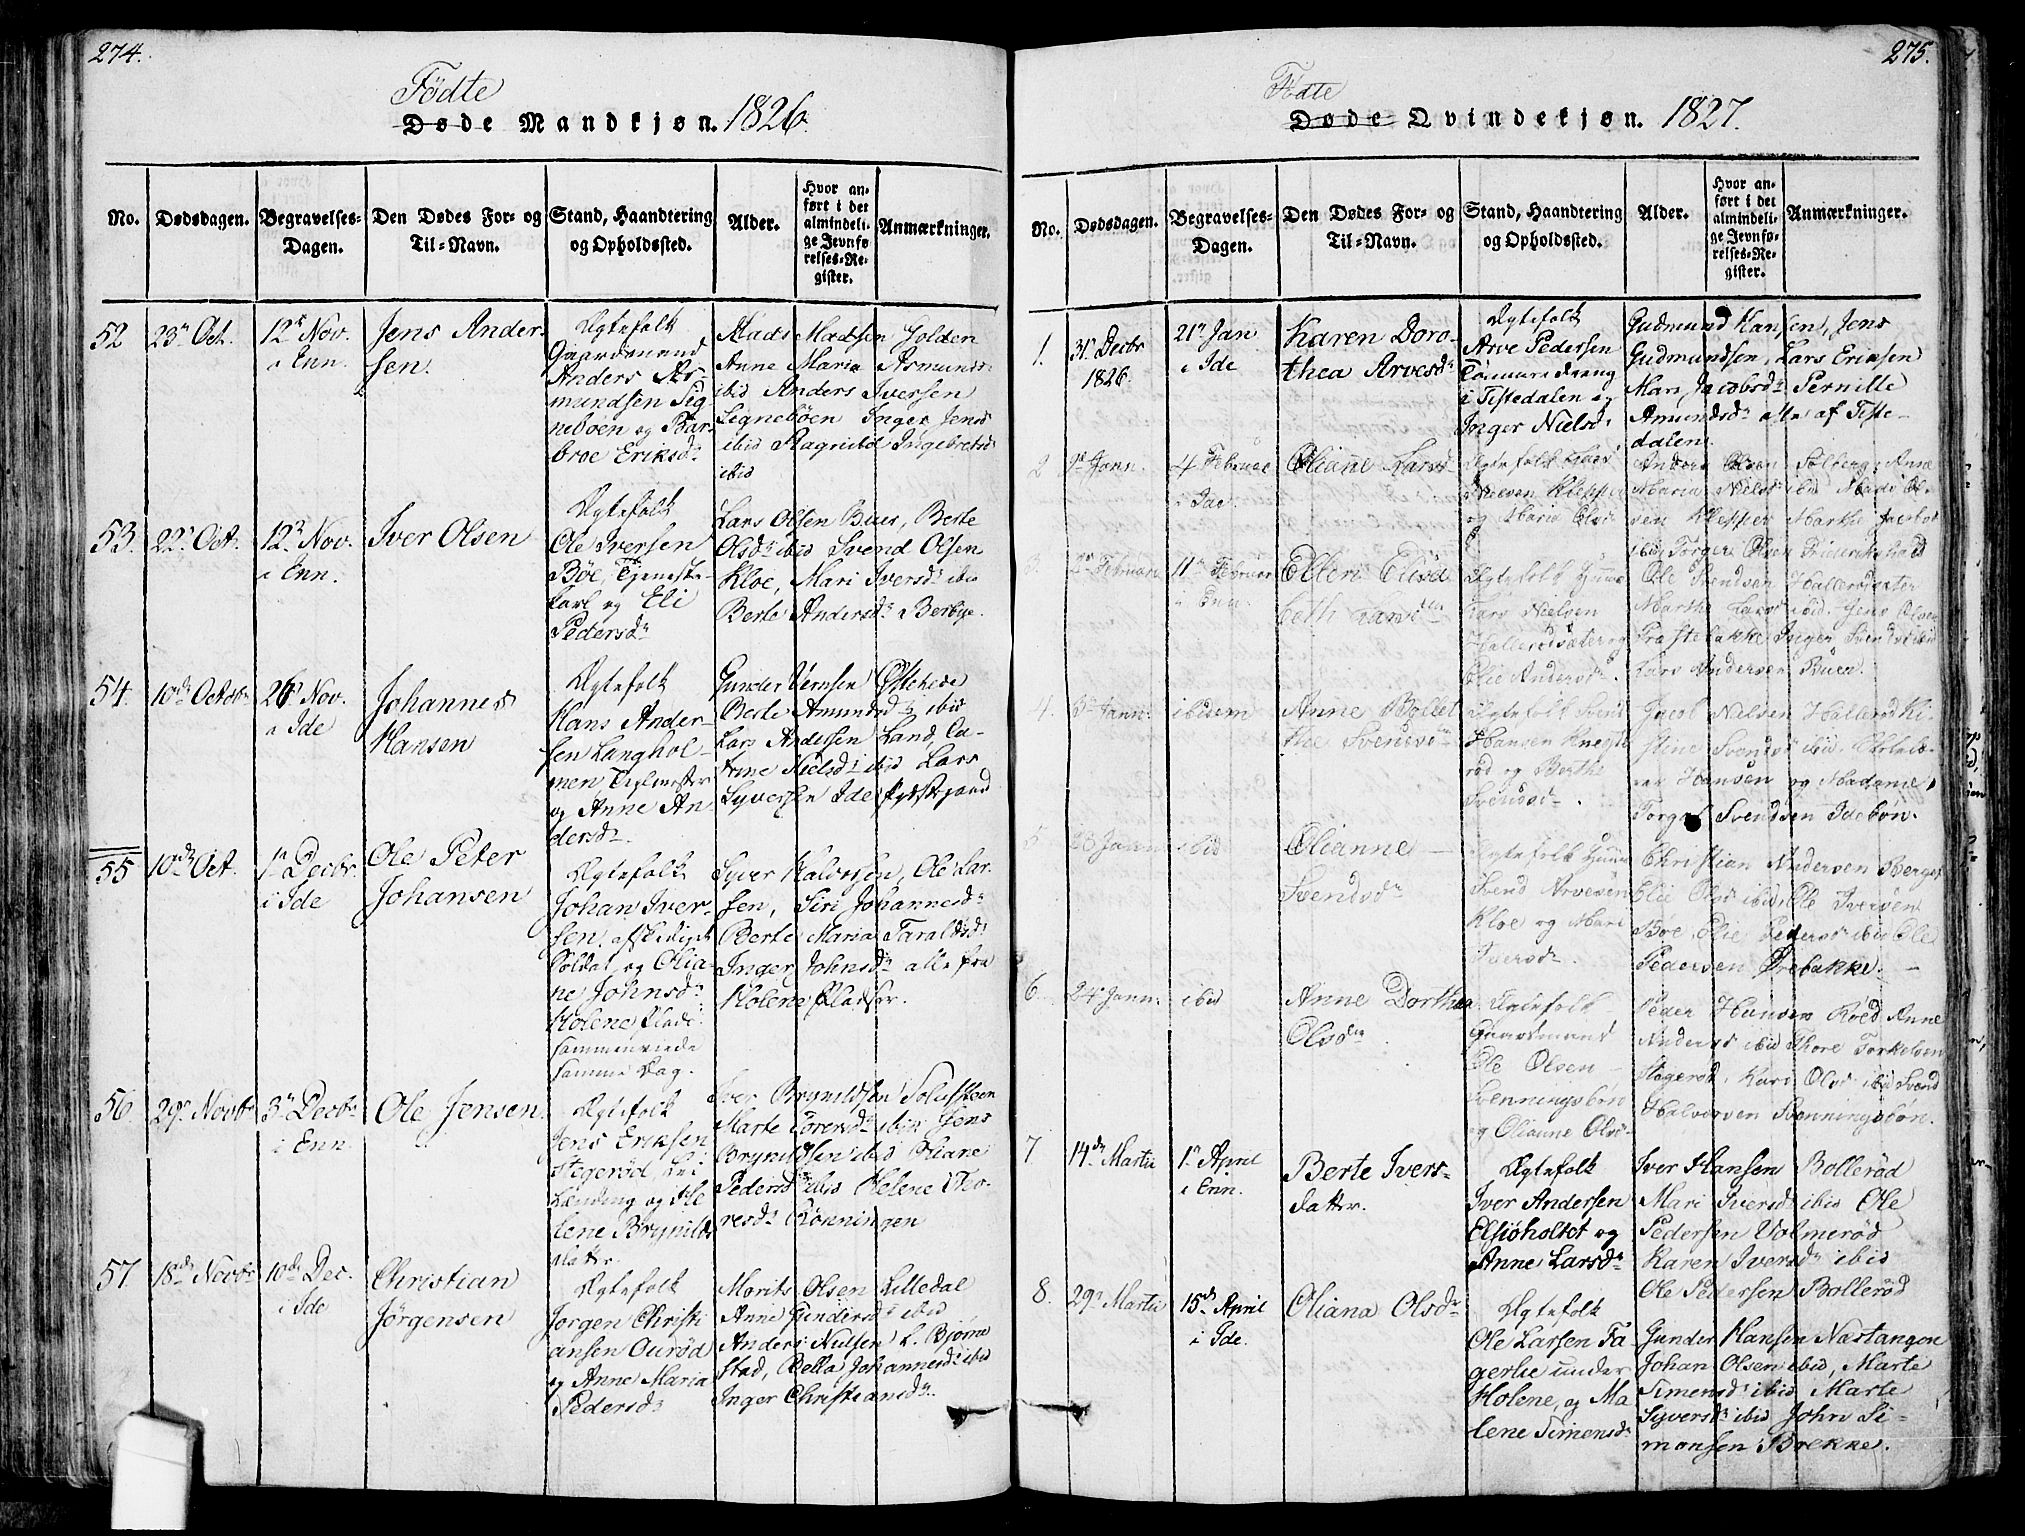 274.
Födte
Døde Mandkjøn. 1826.
No.
Dødsdagen.
Begravelses-
Dagen.
Den Dødes For- og
Til-Navn.
Stand, Haandtering
og Opholdssted.
Alder.
Hvor an-
ført i det
almindeli-
ge Jevnfø-
relses-Re-
gister.
Anmærkninger.
52
23de Oct.
12te Nov.
i Enn.
Jens Ander-
sen.
Ægtefolk
Gaardmand
Anders As
mundsen Sig-
neboen og Bar-
broe Eriksdr
Mads Madsen Holden
Anne Maria Asmundsdr
ibid Anders Iversen
Signebøen Inger Jensdr
ibid Ragnild Ingebretsdr
ibid
53.
22de Oct.
12te Nov.
i Enn.
Iver Olsen
Ægtefolk
Ole Iversen
Bøe, Tjeneste-
karl og Eli
Pedersdr
Lars Olsen Buer, Berte
Olsdr ibid Svend Olsen
Kloe, Mari Iversdr ibid
Berte Andersdr Berbye.
54.
10de Octobr
26 Nov.
i Ide
Johannes
Hansen
Ægtefolk
Hans Ander-
sen Langhol-
men Teglmester
og Anne An-
dersdr
Gunder
Berte Amundsdr ibid
Lars Andersen Land, Ca-
trine Nielsdr ibid Lars
Syversen Ide
55
10de Oct.
1te Decbr.
i Ide
Ole Peter
Johansen
Ægtefolk
Johan Iver-
sen, afskediget
Soldat, og Olia-
ne Johnsdr
Holene Plads.
sammenviede
samme Dag.
Syver Halvorsen, Ole Lar-
sen, Siri Johannesdr
Berte Maria Taraldsdr
Inger Johnsdr alle fra
Holene Pladser.
56.
29de Novbr
3de Decbr
i Enn.
Ole Jensen.
Ægtefolk
Jens Eriksen
Stegerød,
og He
lene Brynilds
datter.
Iver Brynildsen
Marte Torersdr ibid Jens
Brynildsen ibid Oliane
Pedersdr ibid Helene Tho-
resdr Rønningen
57.
18de Novbr
10de Dec.
i Ide
Christian
Jørgensen
Ægtefolk
Jørgen Christi
ansen Ourød
og Anne Maria
Pedersdr
Morits Olsen Lilledal
Anne Gundersdr ibid
Anders Nielsen L. Bjørne
stad, Bella Johannesdr ibid
Inger Christiansdr.
275.
Fødte
Døde Qvindekjøn. 1827.
No.
Dødsdagen.
Begravelses-
Dagen.
Den Dødes For- og
Til-Navn.
Stand, Haandtering
og Opholdssted.
Alder.
Hvor an-
ført i det
almindeli-
ge Jevnfø-
relses-Re-
gister.
Anmærkninger.
1.
31. Decbr
1826
21de Jan
i Ide
Karen Doro-
thea Arvesdr
Ægtefolk
Arve Pedersen
i Tistedalen og
Inger Nielsdr
Gudmund Hansen, Jens
Gudmundsen, Lars Eriksen
Mari Jacobsdr Pernille
Amundsdr alle af Tiste-
dalen.
2
1te Jann.
4 Februar
i Ide
Oliane Larsdr
Ægtefolk Lars
Nielsen Klepper
og Maria Olsdr
Anders Olsen Solberg, Anne
Maria Nielsdr ibid Mads Ol-
sen Klepper Marthe Jacobsdr
ibid, Torger Olsen Friderikshald
3.
2de Februar
11te Februar
i Enn.
Ellen Elisa
beth Larsdtr
Ægtefolk Huusm.
Lars Nielsen
Hallerødsæter og
Elie Andersdr.
Ole Svendsen Hallerødsæter
Marthe Larsdr ibid. Jens Olsen
Præstebakke Inger Svendsdr ibid
Lars Andersen Buer.
4.
6te Jann.
ibidem
Anne Bollet
the Svendsdr
Ægtefolk Svend
Hansen Knegte
rød og Berthe
Svendsdr.
Jacob Nielsen Hallerød Ki-
stine Svendsdr ibid,
Hansen og Madame
Torger Svendsen Idebøn.
5
23 Jann
ibid
Olianne
Svendsdr
Ægtefolk Huusm
Svend Arvesen
Kloe og Mari
Iversdr.
Christian Andersen Berget
Elie Olsdr ibid, Ole Iversen
Bøe, Elie Pedersdr ibid Ole
Pedersen Ørebakke.
6.
24de Jann.
ibid
Anne Dorthea
Olsdr
Ægtefolk
Gaardmand
Ole Olsen
Svenningsbøn
og Olianne Olsdr
Peder Hansen Røed Anne
Andersdr ibid Thore Torkelsen
Stegerød, Kari Olsdr ibid Svend
Halvorsen Svenningsbøn.
7
14de Martii
1te April
i Enn.
Berte Ivers-
datter.
Ægtefolk
Iver Andersen
Elsiøholtet og
Anne Larsdr
Iver Hansen Bollerød
Mari Iversdr ibid Ole
Pedersen Volmerød
Karen Iversdr ibid
Ole Pedersen Bollerød
8.
29de Martii
15de April
i Ide.
Oliana Olsdr
Ægtefolk
Ole Larsen Fa
gerlie under
Holene, og Ma
lene Simensdr
Gunder Hansen Næstangen
Johan Olsen ibid, Marte
Simensdr ibid Marte
Syversdr ibid John Si-
monsen Brekke.